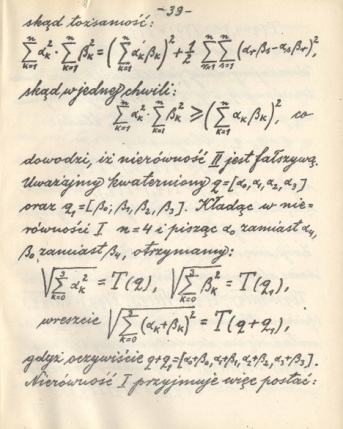 -39-
skąd tożsamość:
$\sum_{k=1}^{n} \alpha_k^2 \cdot \sum_{k=1}^{n} \beta_k^2 = \left(\sum_{k=1}^{n} \alpha_k \beta_k\right)^2 + \frac{1}{2} \sum_{r=1}^{n} \sum_{s=1}^{n} (\alpha_r \beta_s - \alpha_s \beta_r)^2,$
skąd w jednej chwili:
$\sum_{k=1}^{n} \alpha_k^2 \cdot \sum_{k=1}^{n} \beta_k^2 \geq \left(\sum_{k=1}^{n} \alpha_k \beta_k\right)^2,$ co
dowodzi, iż nierówność II jest fałszywą.
Uważajmy kwaterniony $q = [\alpha_0, \alpha_1, \alpha_2, \alpha_3]$
oraz $q_1 = [\beta_0, \beta_1, \beta_2, \beta_3]$. Kładąc w nie-
równości I n=4 i pisząc $\alpha_0$ zamiast $\alpha_4$,
$\beta_0$ zamiast $\beta_4$, otrzymamy:
$\sqrt{\sum_{k=0}^{3} \alpha_k^2} = T(q), \sqrt{\sum_{k=0}^{3} \beta_k^2} = T(q_1),$
wreszcie $\sqrt{\sum_{k=0}^{3} (\alpha_k + \beta_k)^2} = T(q + q_1),$
gdyż oczywiście $q + q_1 = [\alpha_0 + \beta_0, \alpha_1 + \beta_1, \alpha_2 + \beta_2, \alpha_3 + \beta_3]$.
Nierówność I przyjmuje więc postać: